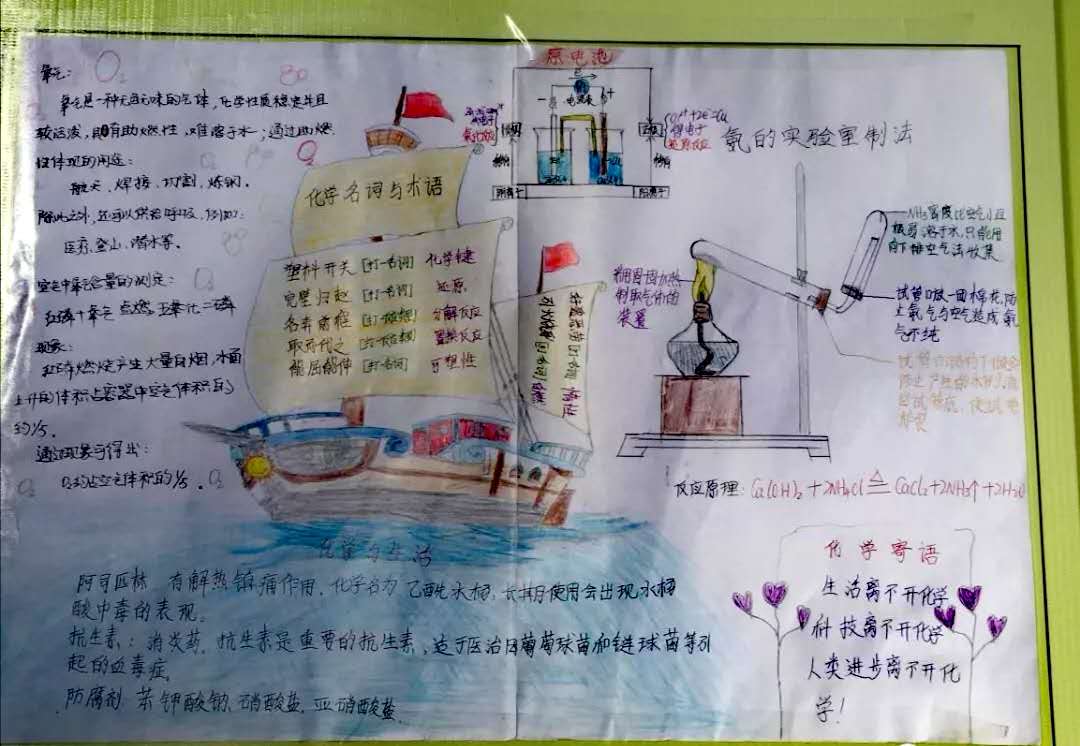 氧气: O₂
氧气是一种无色无味的气体，化学性质稳定并且
较活泼，具有助燃性，难溶于水；通过助燃
性体现的用途：
航天、焊接、切割、炼钢。
除此之外，还可以供给呼吸，例如：
医疗、登山、潜水等。
空气中氧气含量的测定：
红磷+氧气 点燃 五氧化二磷
现象：
红磷燃烧产生大量白烟，水面
上升的体积占容器中空气体积的
约1/5。
通过现象可得出：
O₂约占空气体积的1/5。
O₂
化学名词与术语
塑料开关 [打一名词] 化学键
完璧归赵 [打一名词] 还原
名弃前程 分解反应
取而代之 置换反应
能屈能伸 [打一名词] 可塑性
惰性
自燃
原电池
电流表
氧化反应
得电子
还原反应
阳离子
氨的实验室制法
利用固固加热
制取气体的
装置
NH₃密度比空气小且
极易溶于水，只能用
向下排空气法收集
试管口放一团棉花，防
止氨气与空气对流
气不纯
反应原理：Ca(OH)₂+2NH₄Cl △ CaCl₂+2NH₃↑+2H₂O
化学与生活
阿司匹林 有解热镇痛作用，化学名为 乙酰水杨，长期使用会出现水杨
酸中毒的表现。
抗生素：消炎药，抗生素是重要的抗生素，适于医治因葡萄球菌和链球菌等引
起的血毒症。
防腐剂 苯钾酸钠、硝酸盐、亚硝酸盐
化学寄语
生活离不开化学
科技离不开化学
人类进步离不开化
学！